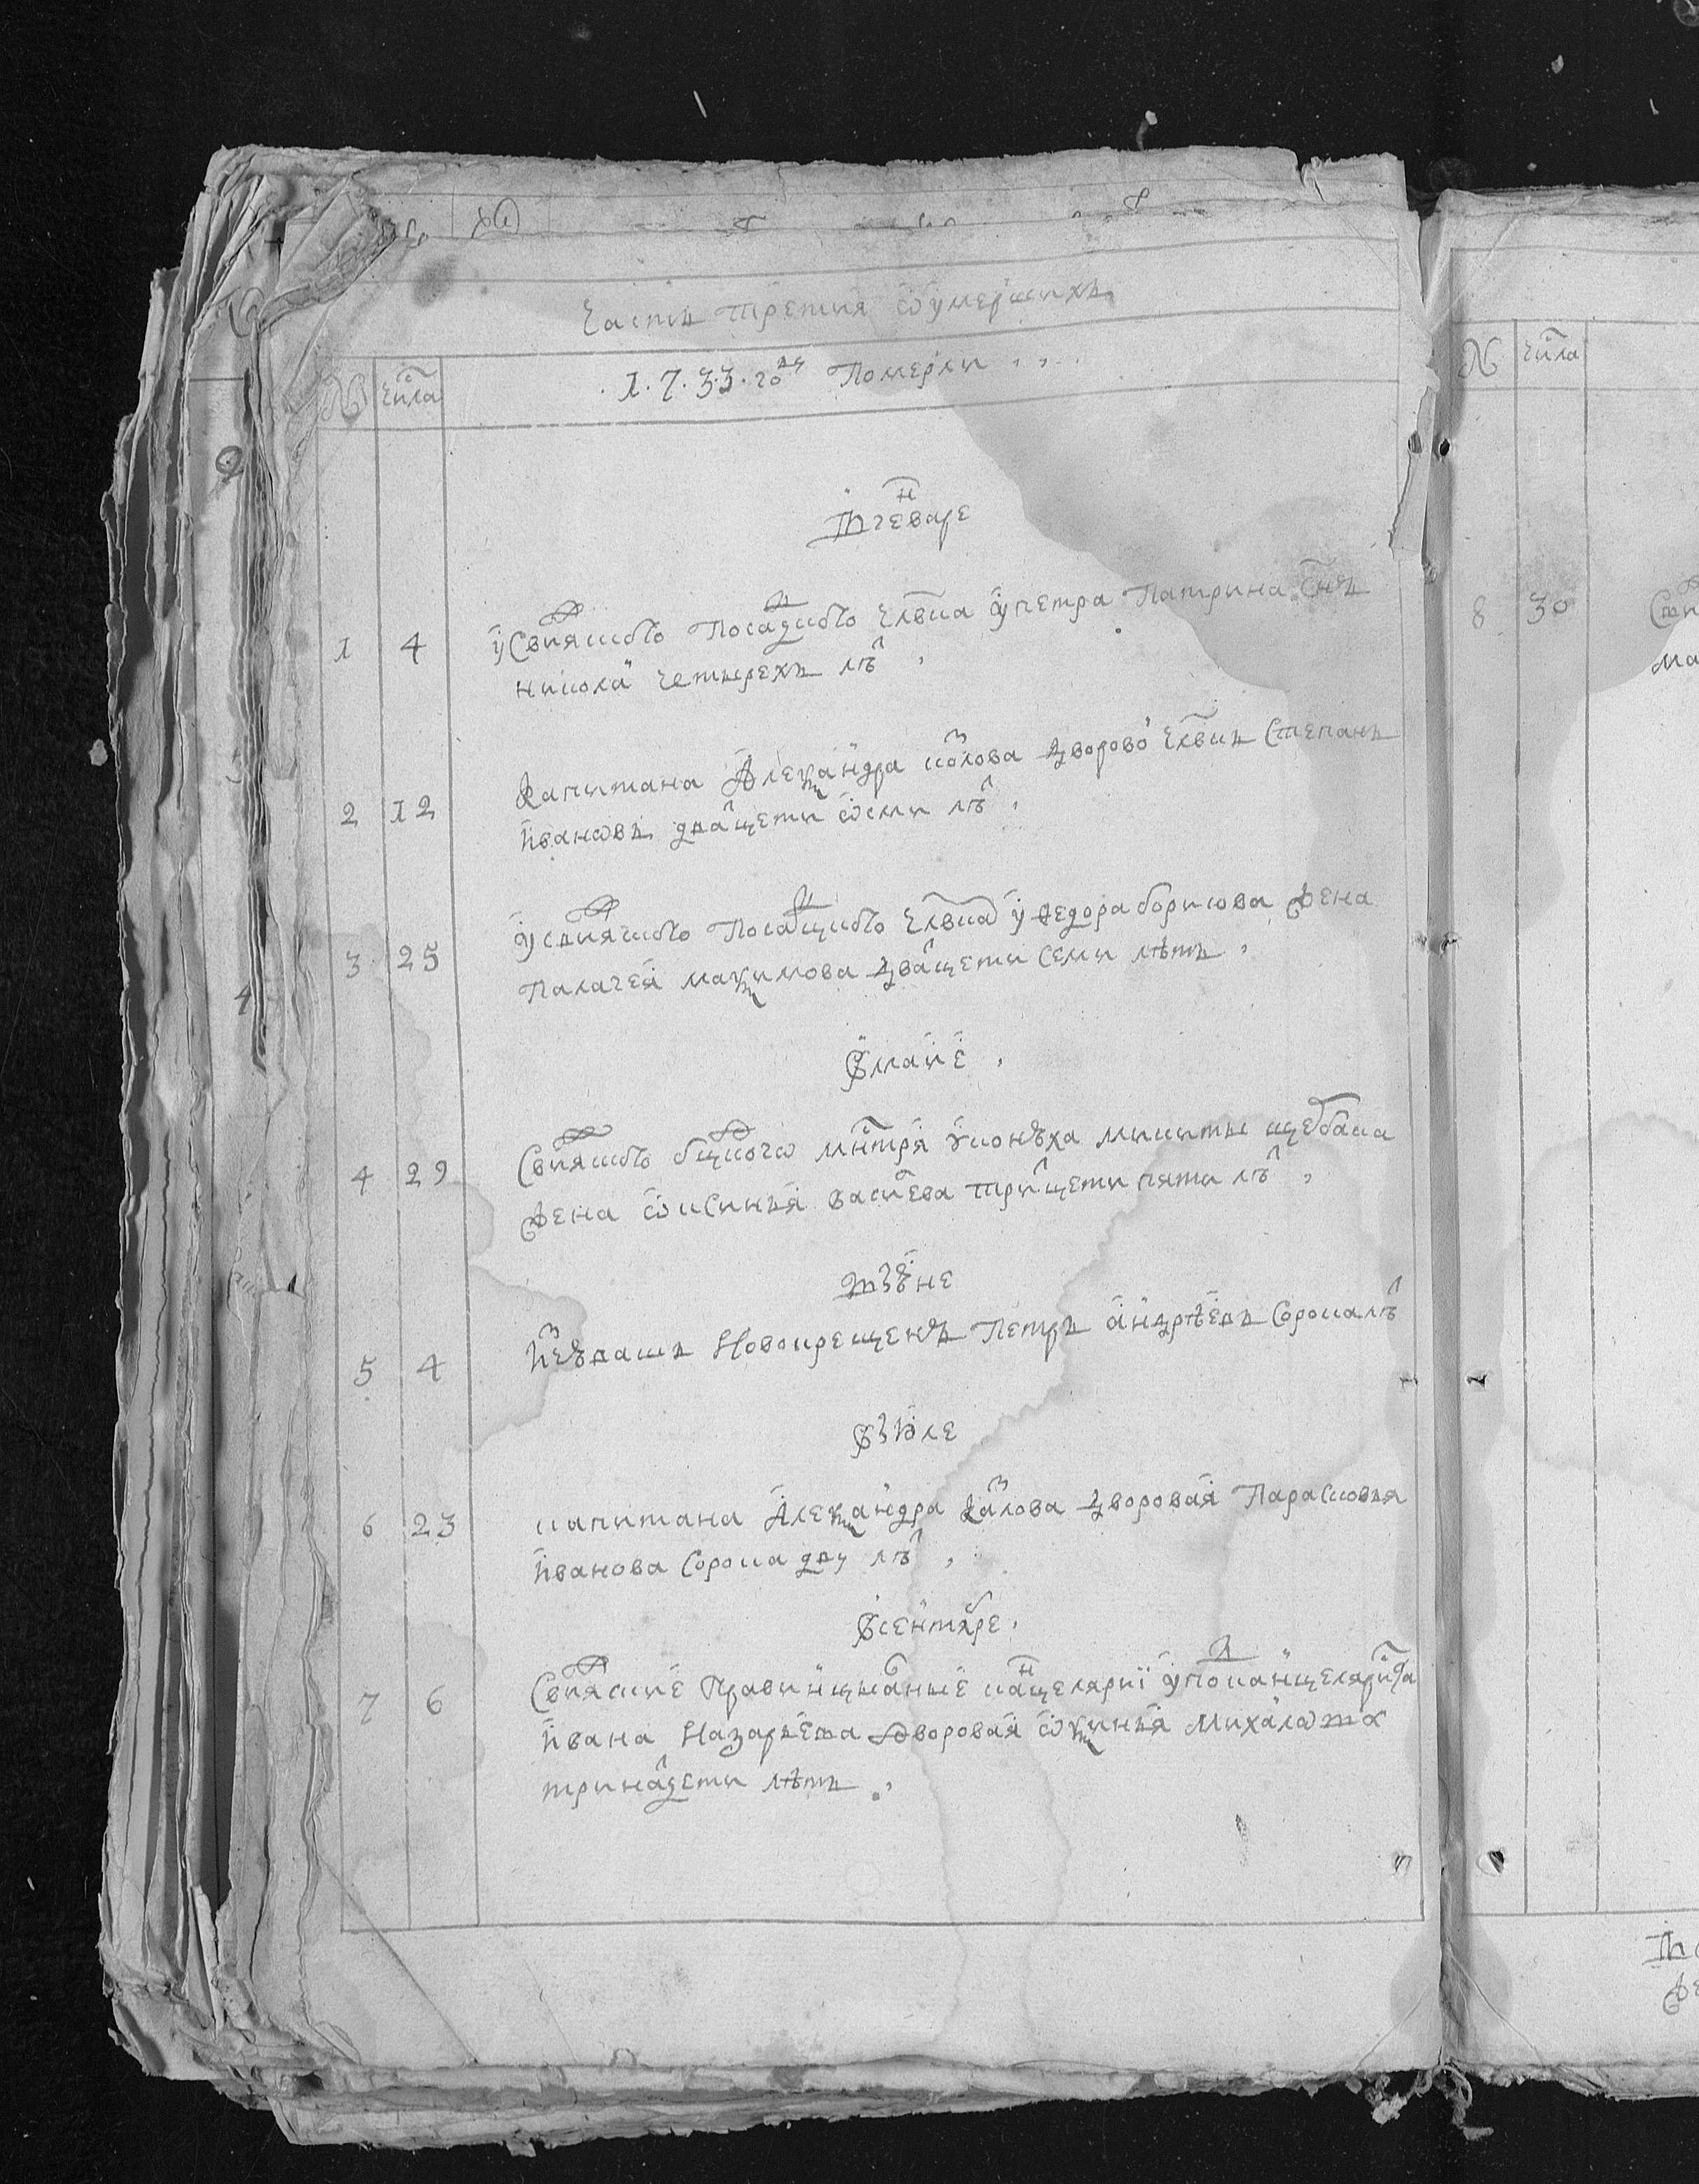 Часть третия ѿ умерших
№ числа 1733 году померли
Вгенваре
1 4 у Свияжского посадцкого члвка у Петра Патрина снъ
Никола четырехъ лѣт
2 12 Капитана Алеѯандра Козлова дворовои члвкъ Степанъ
Ивановъ дватцети ѡсми лѣт
3 25 у свияжского посадцкого члвка у Федора Борисова жена
Палагея Маѯимова дватцети семи лѣтъ
В маие
4 29 Свияжского бцкого мнстря у конюха Микиты
жена Ѡксинья Василева тритцети пяти лѣт
В ыюне
5 4 новокрещенъ Петръ Андрѣевъ сорока лѣт
В ыюле
6 23 капитана Алеѯандра Козлова дворовая Парасковья
Иванова сорока дву лѣт
В сентябре
7 6 Свияжские правинцыалные канцелярии у подканцеляриста
Ивана Назарьева дворовая Ѡѯинья Михаилова
тринатцети лѣтъ
№ числа
8 30